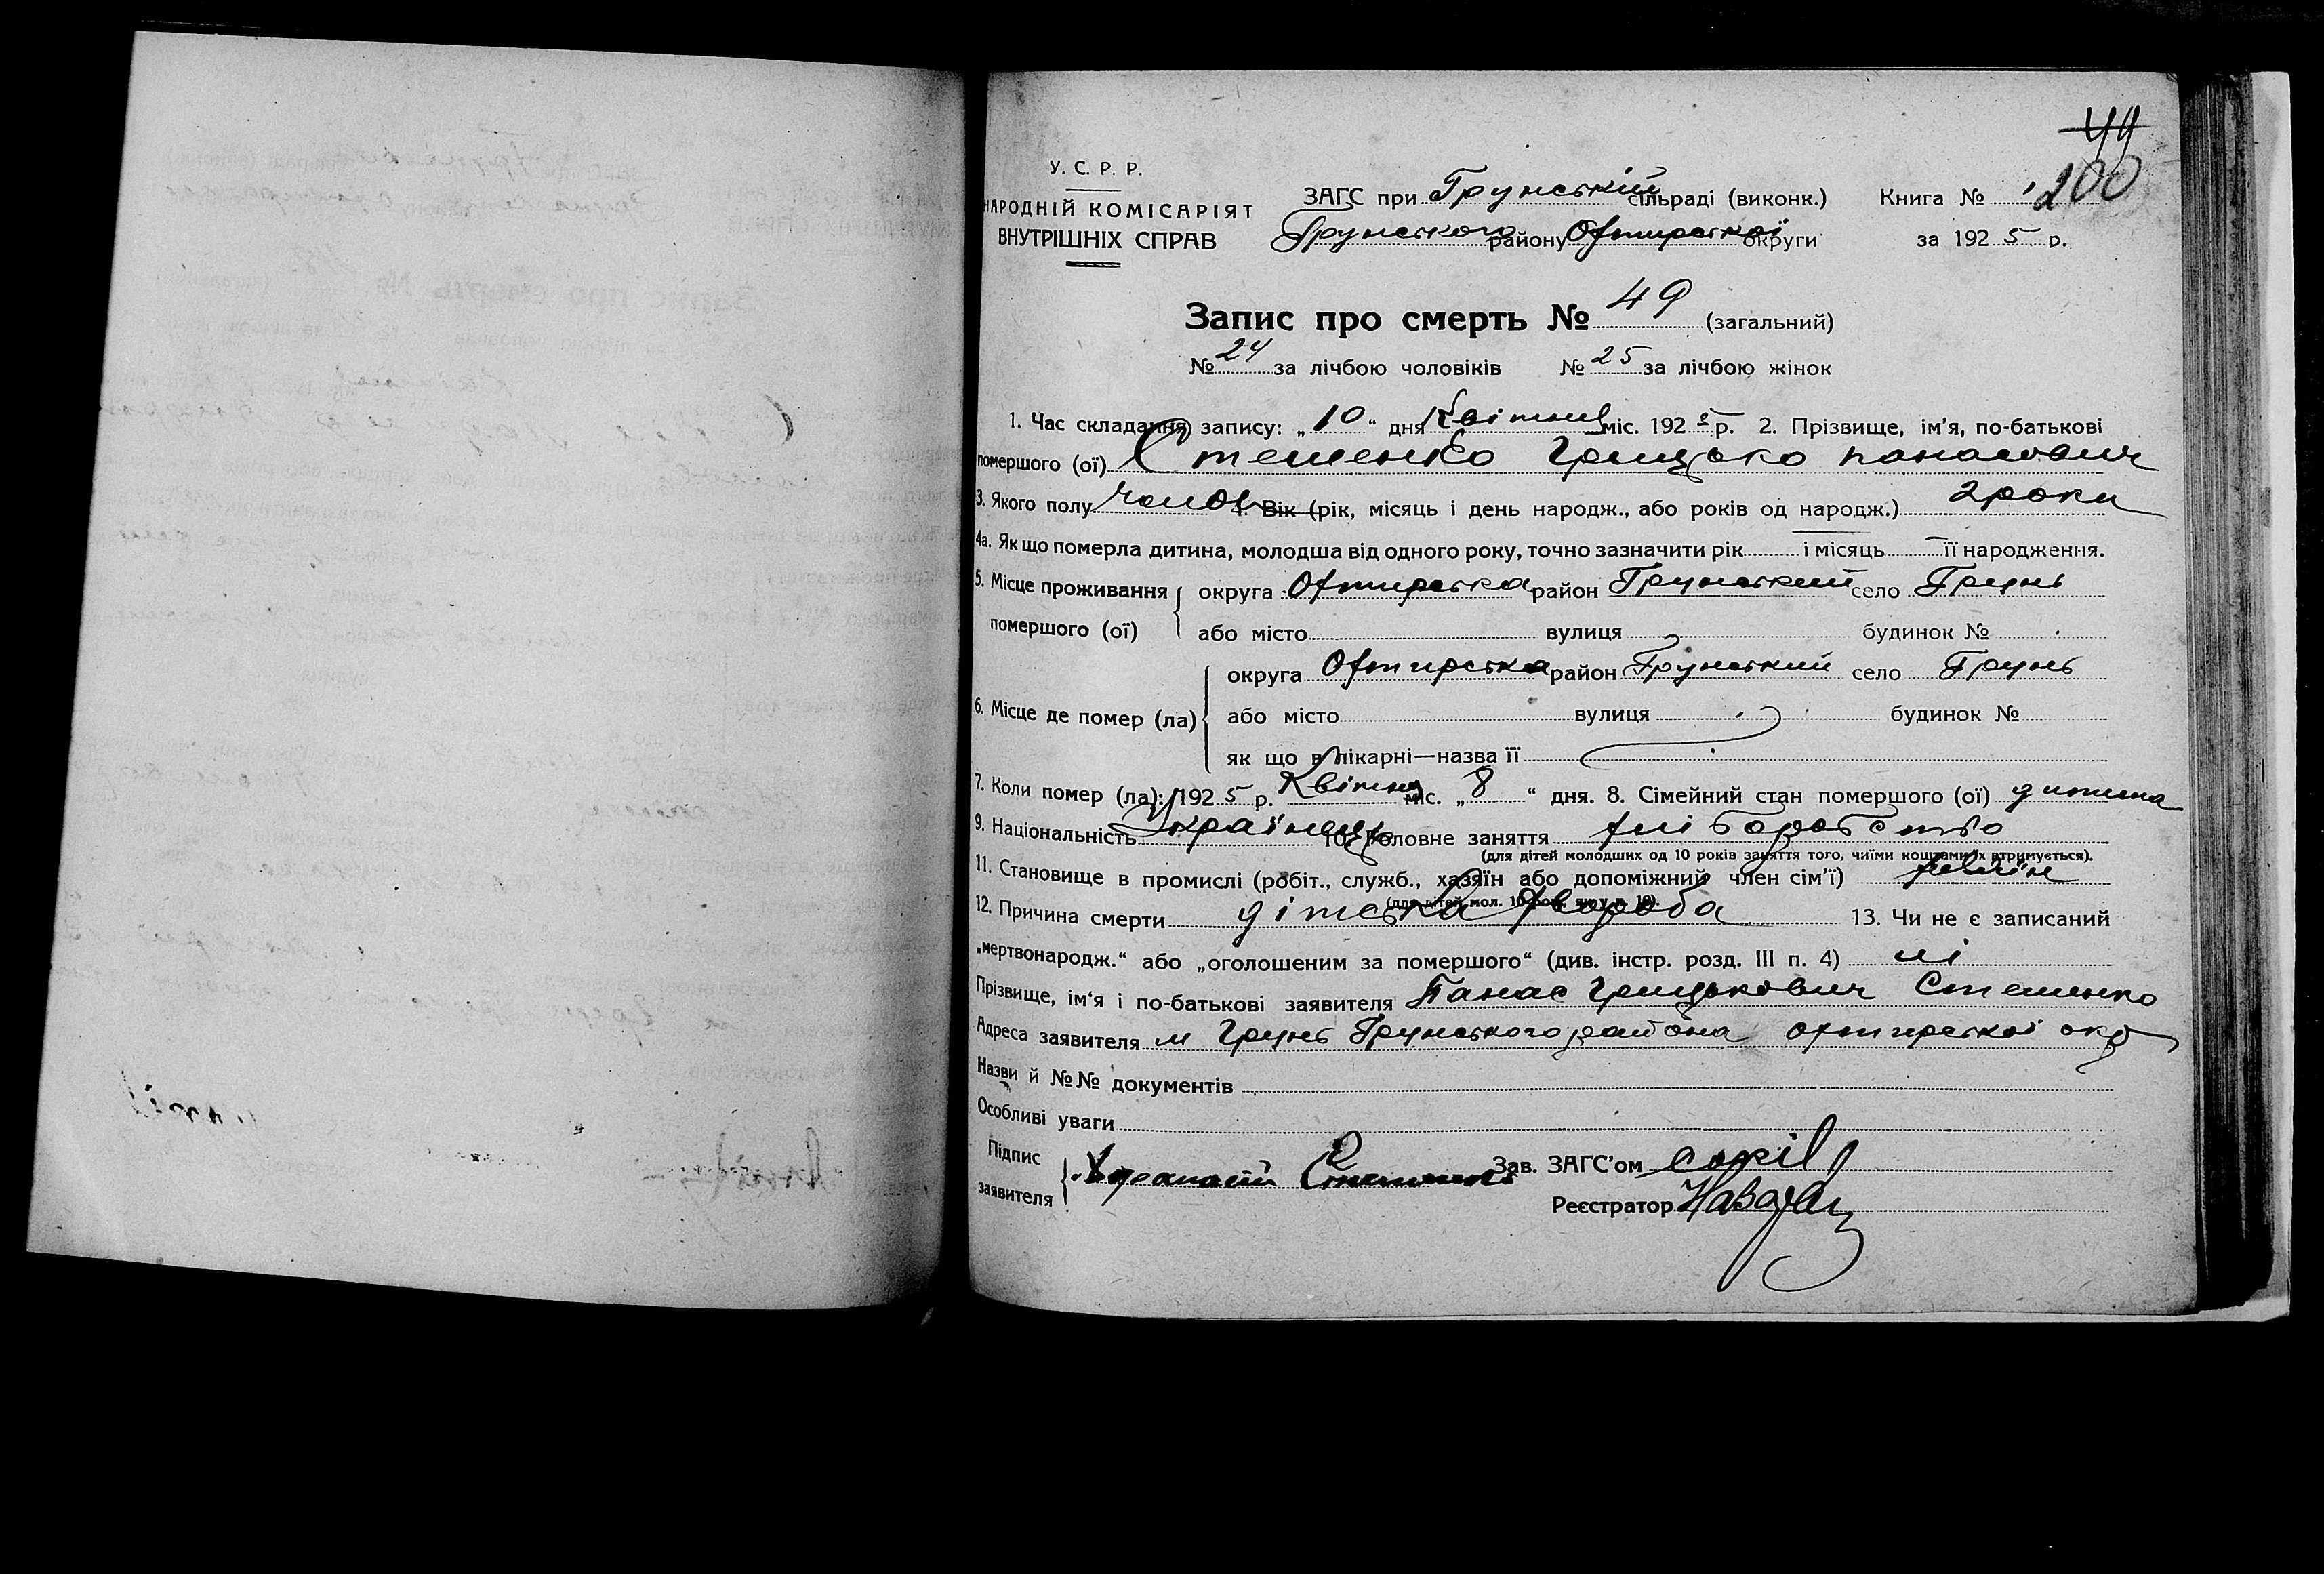 49
200
У. С. Р. Р.
НАРОДНІЙ КОМІСАРІЯТ
ВНУТРІШНІХ СПРАВ
ЗАГС при Грунській сільраді (виконк.) Книга №
Грунського району Охтирської округи за 1925 р.
Запис про смерть № 49 (загальний)
№ 24 за лічбою чоловіків № 25 за лічбою жінок
1. Час складання запису: „10“ дня Квітня міс. 1925 р. 2. Прізвище, ім’я, по-батькові
помершого (ої) Стеценко Грицько панасович
3. Якого полу чолов 4. Вік (рік, місяць і день народж., або років од народж.) 2 роки
4а. Як що померла дитина, молодша від одного року, точно зазначити рік — і місяць — її народження.
5. Місце проживання помершого (ої) округа Охтирська район Грунський село Грунь
або місто вулиця будинок №
6. Місце де помер (ла) округа Охтирська район Грунський село Грунь
або місто вулиця будинок №
як що в лікарні—назва її
7. Коли помер (ла): 1925 р. Квітня міс. „8“ дня. 8. Сімейний стан помершого (ої) дитина
9. Національність Українець 10. Головне заняття хліборобство
(для дітей молодших од 10 років заняття того, чиїми коштами їх втримується).
11. Становище в промислі (робіт., служб., хазяїн або допоміжний член сім’ї)
(для дітей мол. 10 рок. як у п. 10).
12. Причина смерти дітська хвороба 13. Чи не є записаний
„мертвонародж.“ або „оголошеним за помершого“ (див. інстр. розд. III п. 4) ні
Прізвище, ім‘я і по-батькові заявителя Панас Грицькович Стеценко
Адреса заявителя м Грунь Грунського района охтирської окр
Назви й №№ документів
Особливі уваги
Підпис заявителя Стеценко Зав. ЗАГС’ом
Реєстратор